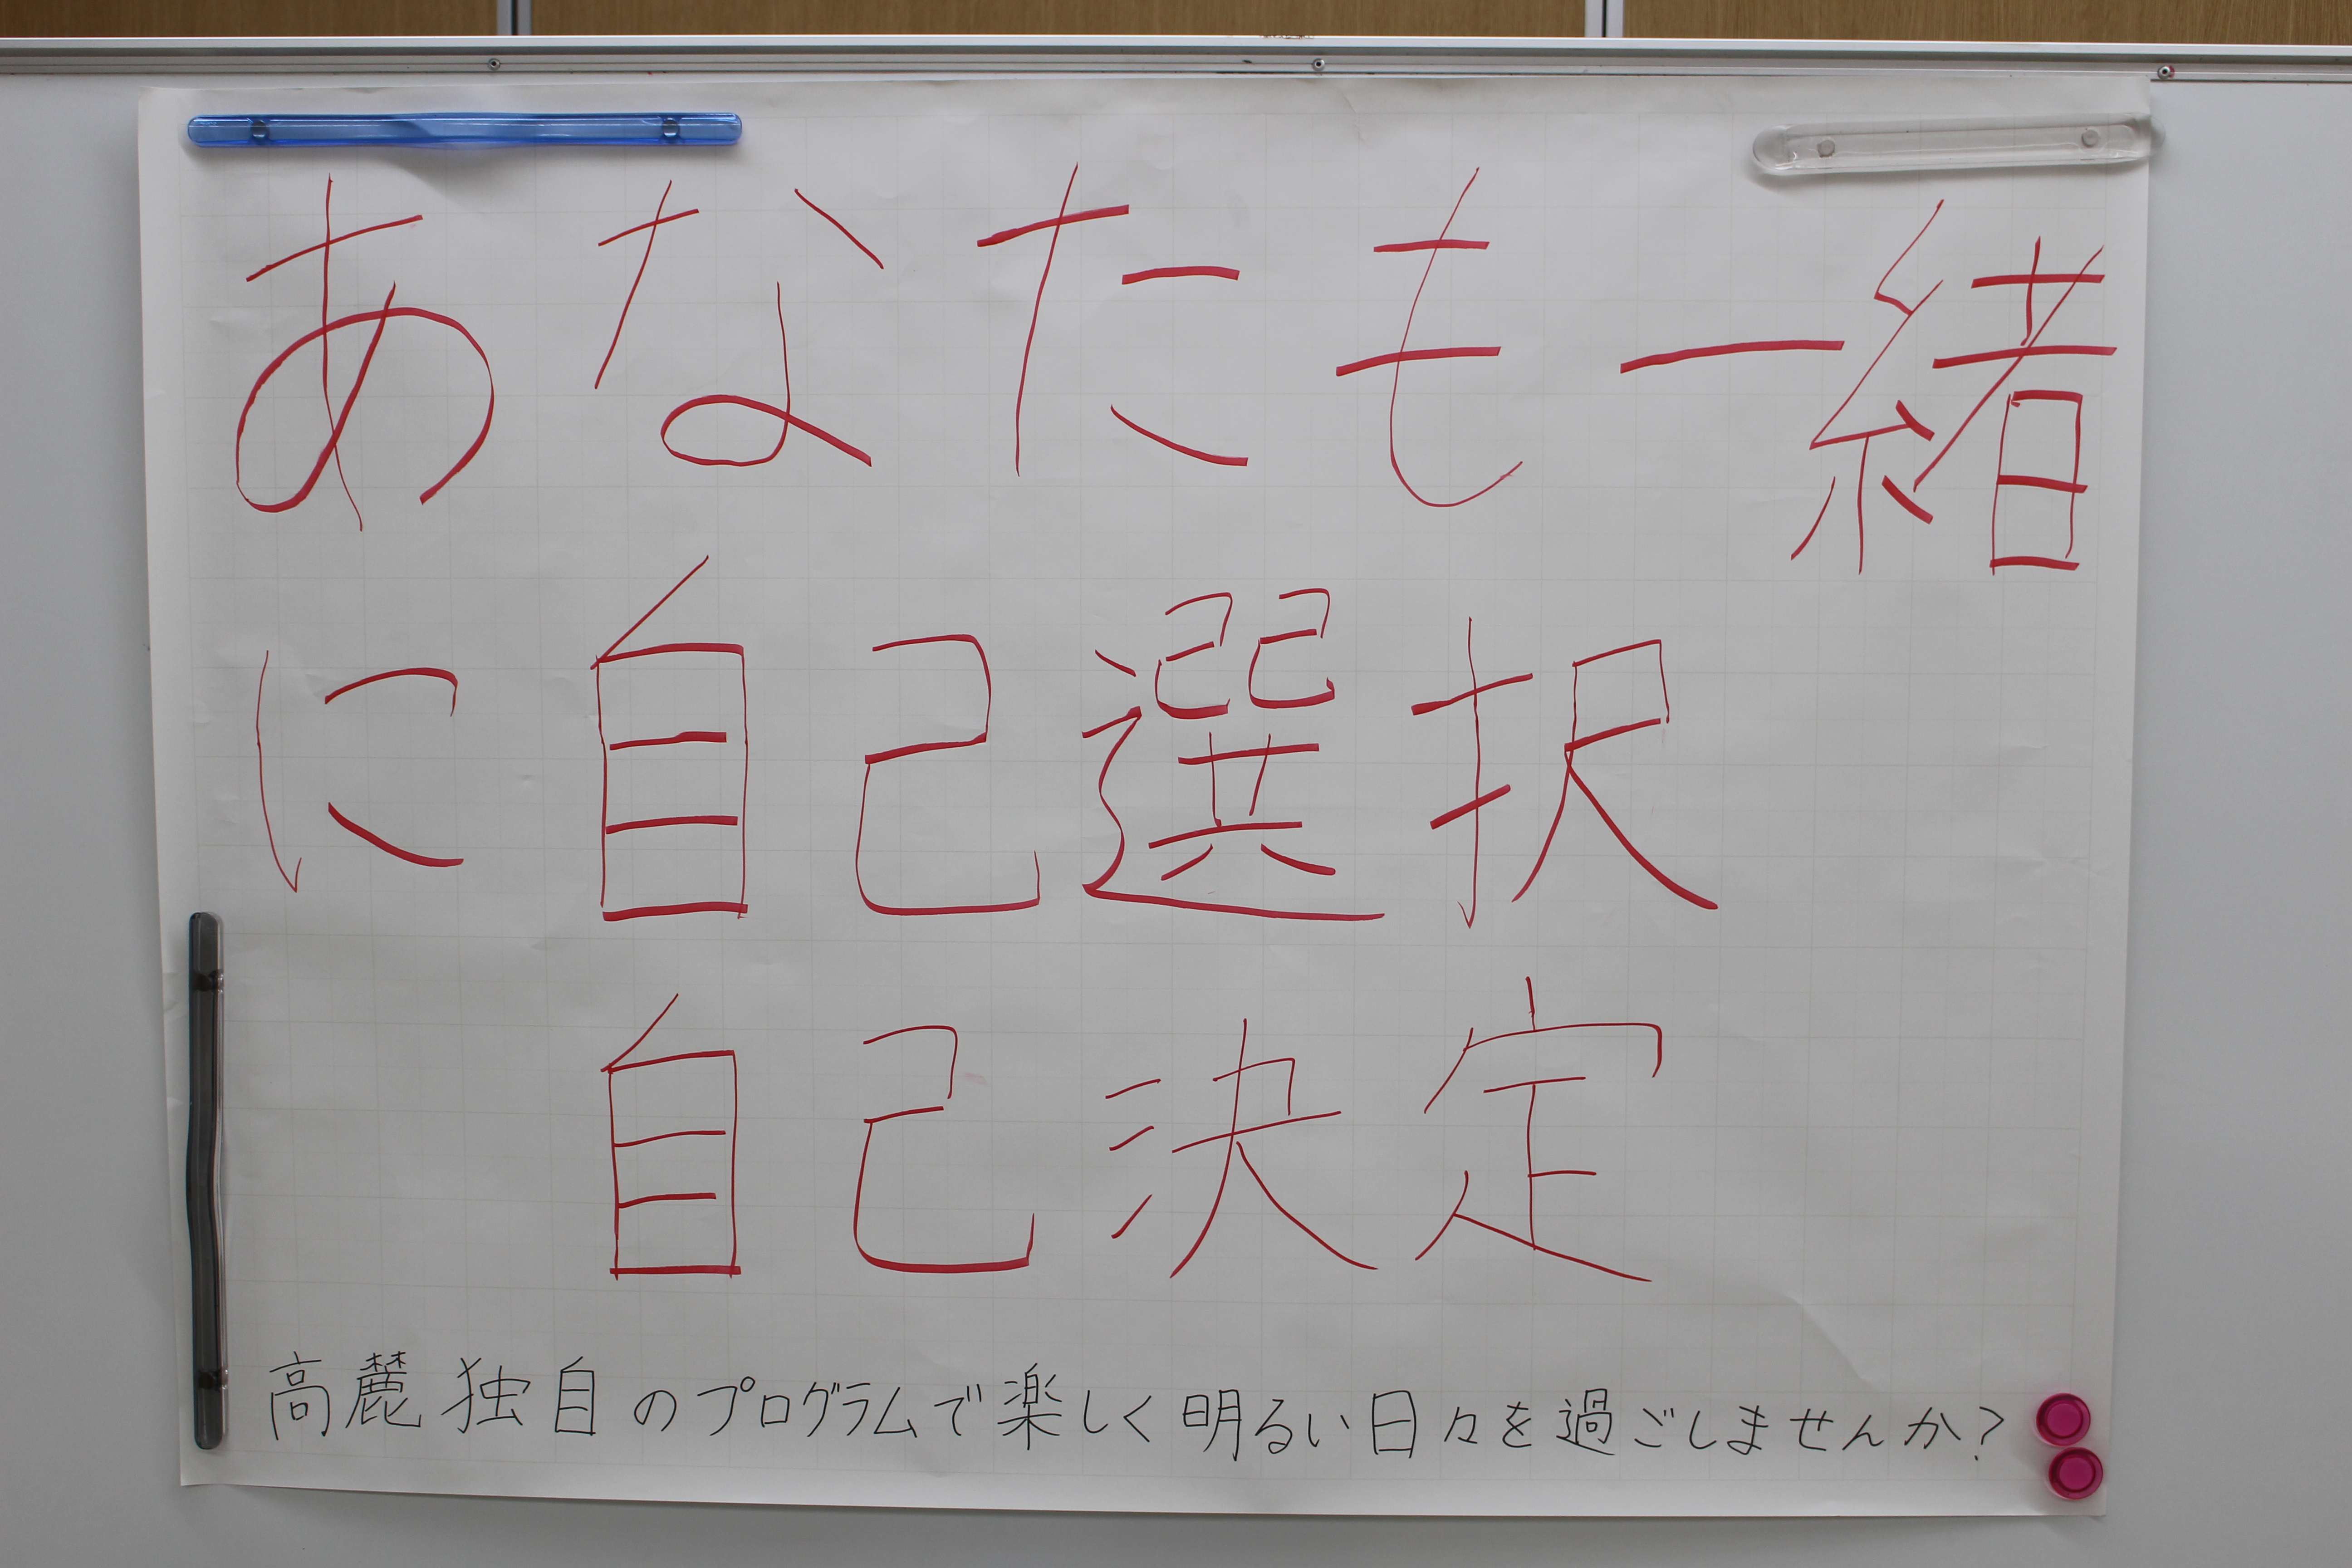 あなたも一緒
に自己選択
自己決定
高麗独自のプログラムで楽しく明るい日々を過ごしませんか?